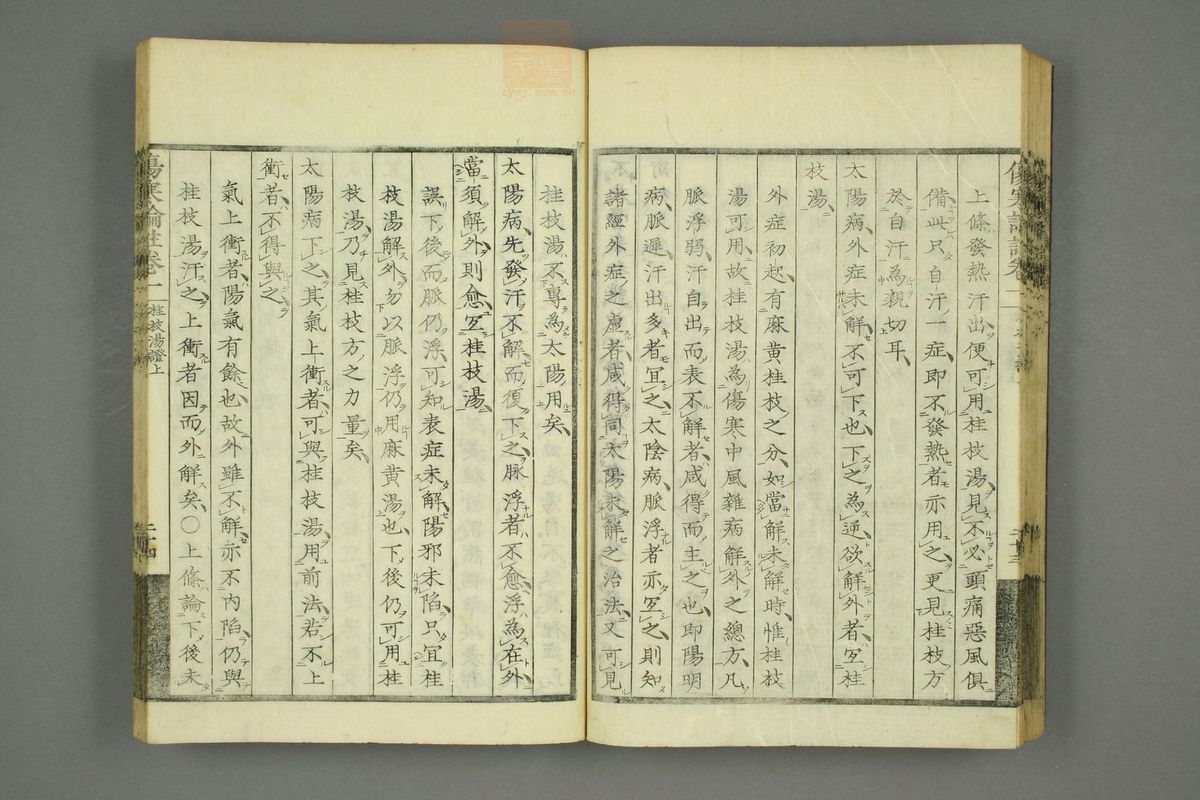 上條發熱汗出便可用桂枝湯見不必頭痛惡風俱
備此只自汗一症即不發熱者亦用之更見桂枝方
於自汗為親切耳
太陽病外症未解不可下也下之為逆欲解外者宜桂
枝湯
外症初起有麻黄桂枝之分如當解未解時惟桂枝
湯可用故桂枝湯為傷寒中風雜病解外之總方凡
脈浮弱汗自出而表不解者咸得而主之也即陽明
病脈遲汗出多者宜之太陰病脈浮者亦宜之則知
諸經外症之虛者咸得同太陽未解之治法又可見
桂枝湯不專為太陽用矣
太陽病先發汗不解而復下之脉浮者不愈浮為在外
當須解外則愈宜桂枝湯
誤下後而脈仍浮可知表症未解陽邪未陷只宜桂
枝湯解外勿以脈浮仍用麻黄湯也下後仍可用桂
枝湯乃見桂枝方之力量矣
太陽病下之其氣上衝者可與桂枝湯用前法若不上
衝者不得與之
氣上衝者陽氣有餘也故外雖不解亦不内陷仍與
桂枝湯汗之上衝者因而外解矣〇上條論下後未
傷寒論註卷一 桂枝湯證上 二十四
zysj.com.cn